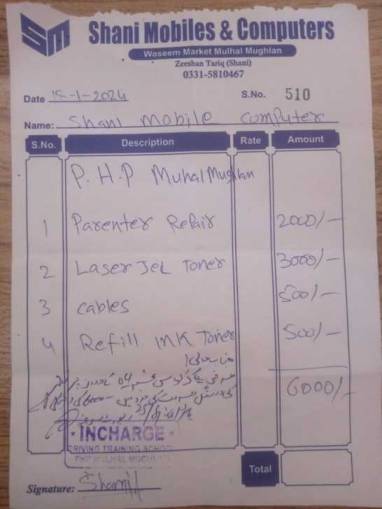 SM
Shani Mobiles & Computers
Waseem Market Mulhal Mughlan
Zeeshan Tariq (Shani)
0331-5810467
Date 15-1-2024 S.No. 510
Name: Shani Mobile Computer
S.No. Description Rate Amount
P.H.P Muhal Mughlan
1 Parenter Refair 2000/-
2 Laser Jet Toner 3000/-
3 cables 500/-
4 Refill INK Toner 500/-
6000/-
INCHARGE
DRIVING TRAINING SCHOOL
PHP MULHAL MUGHLAN
Total
Signature: